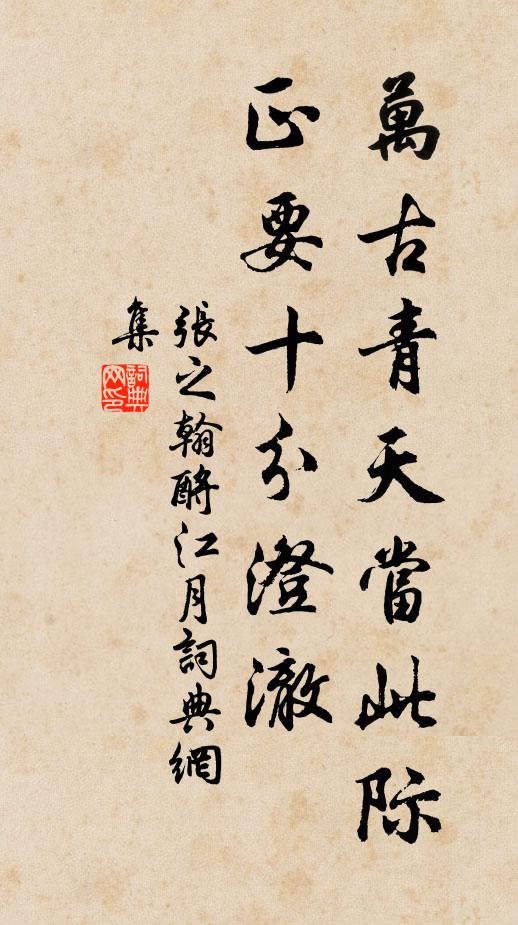 萬古青天當此际
正要十分澄澈
張之翰酹江月詞典網
集
詞典
网印